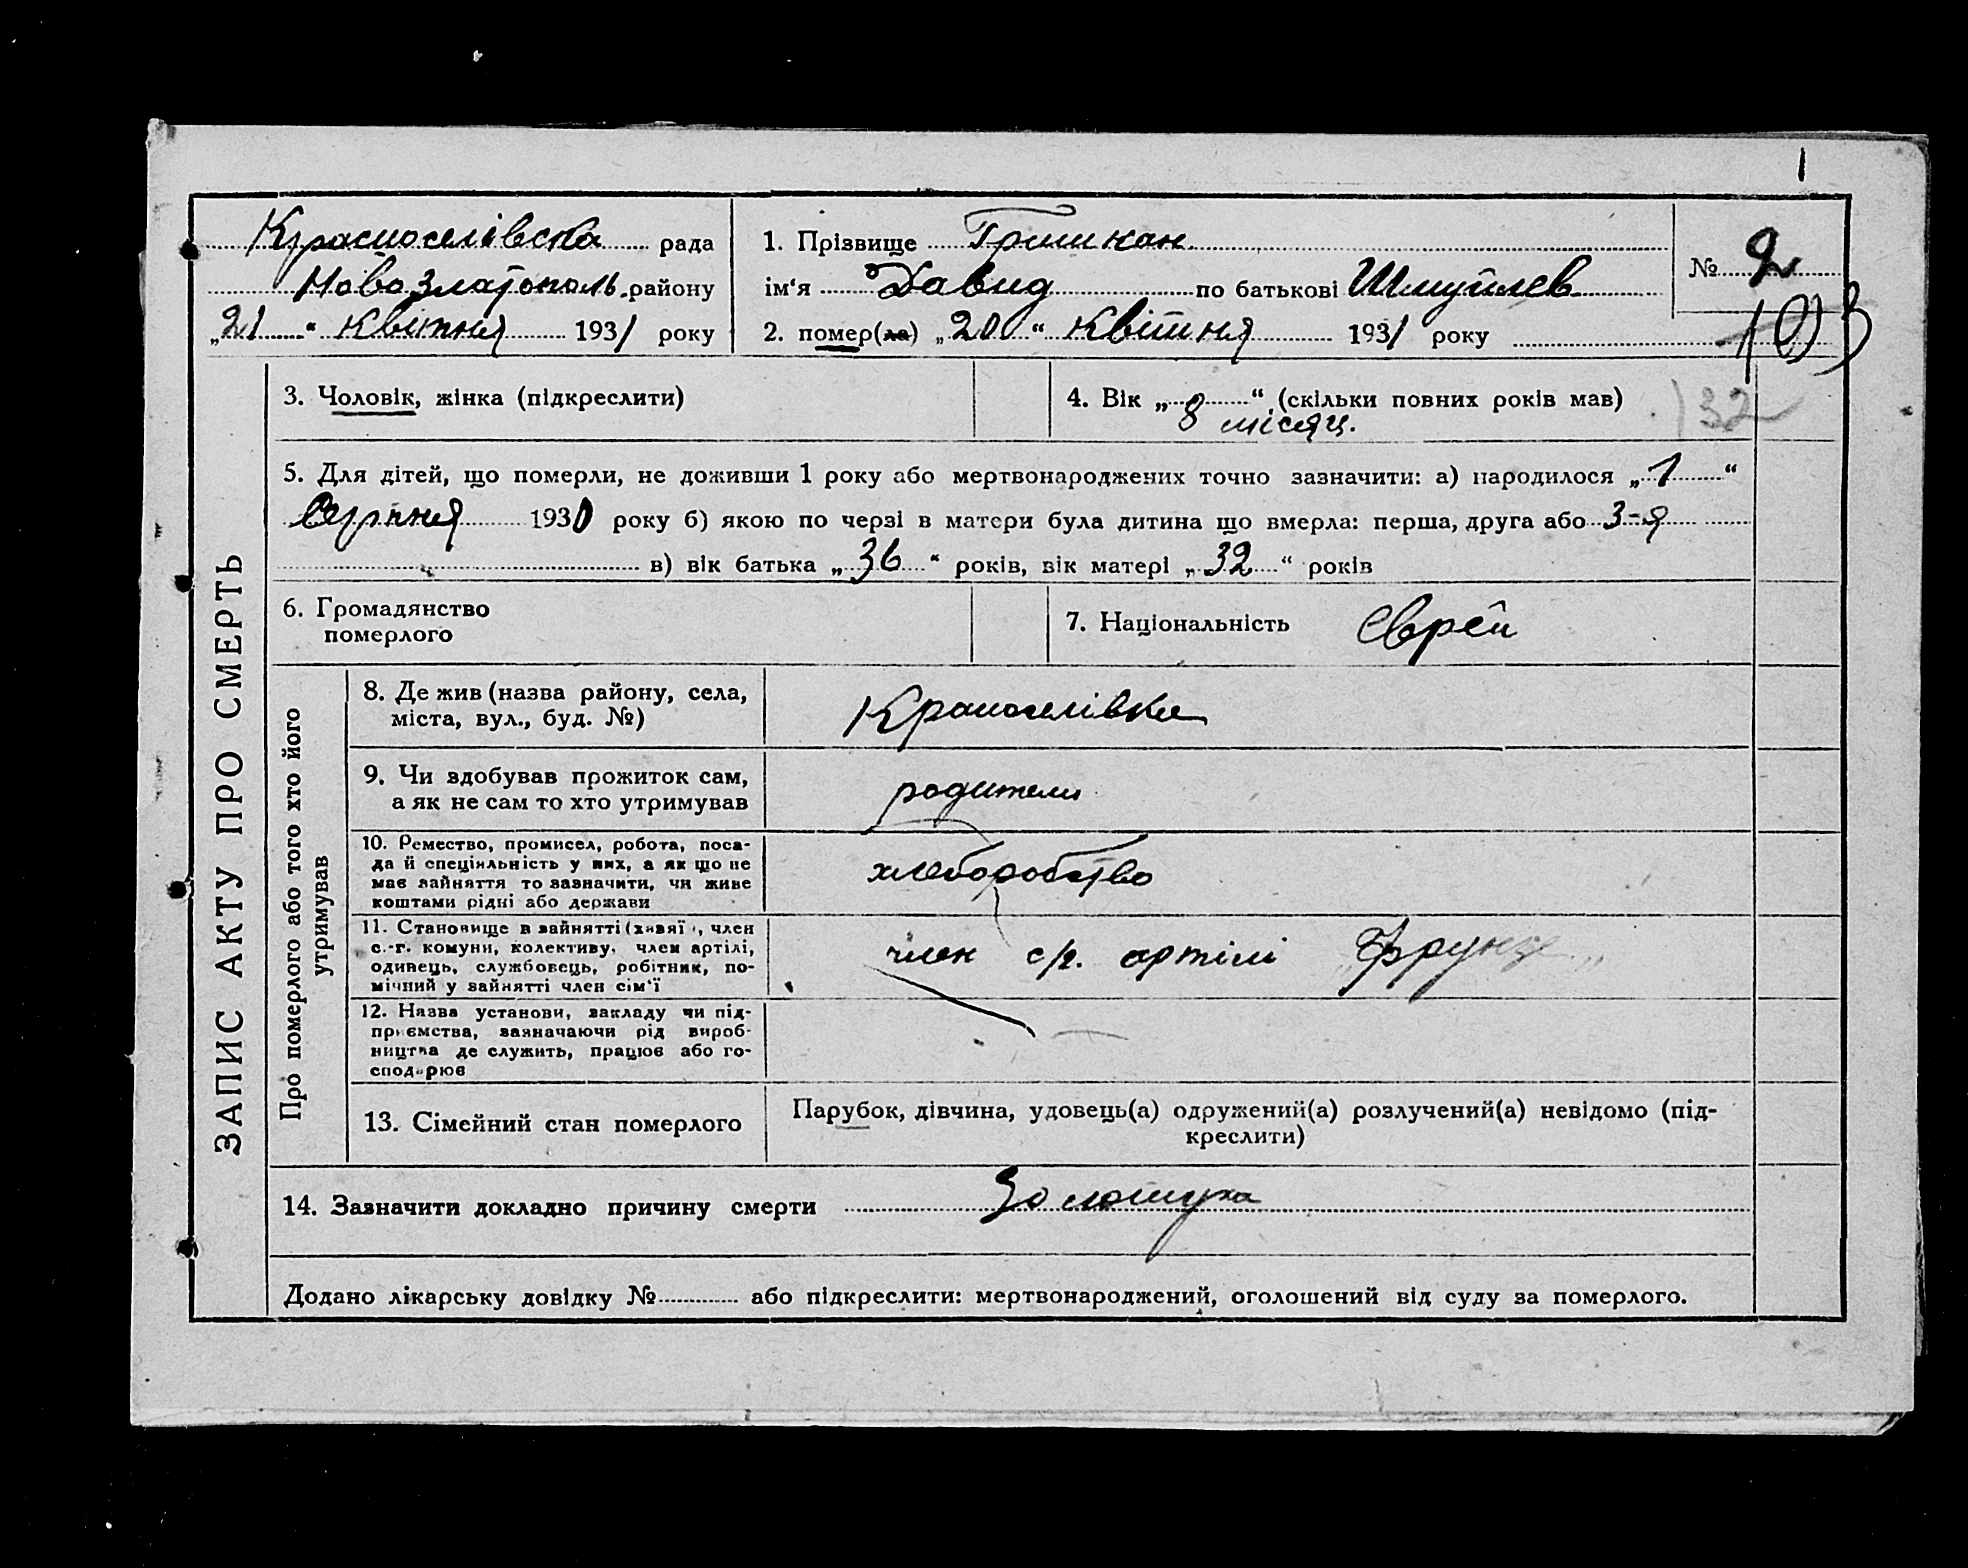 1
Красноселівска рада
Ново Златополь. району
„21“ квітня 1931 року
1. Прізвище Гришкан
ім'я Давид по батькові Шмуйлев
2. помер(ла) „20“ квітня 1931 року
№ 2
103
132
ЗАПИС АКТУ ПРО СМЕРТЬ
3. Чоловік, жінка (підкреслити)
4. Вік „8“ (скільки повних років мав)
місяц.
5. Для дітей, що померли, не доживши 1 року або мертвонароджених точно зазначити: а) народилося „1“
Серпня 1930 року б) якою по черзі в матери була дитина що вмерла: перша, друга або 3-я
в) вік батька „36“ років, вік матері „32“ років
6. Громадянство
померлого
7. Національність Єврей
Про померлого або того хто його
утримував
8. Де жив (назва району, села,
міста, вул., буд. №)
Красноселівка
9. Чи здобував прожиток сам,
а як не сам то хто утримував
родители
10. Ремество, промисел, робота, поса-
да й спеціяльність у них, а як що не
має зайняття то зазначити, чи живе
коштами рідні або держави
хлеборобство
11. Становище в зайнятті (хазяї, член
с.-г. комуни, колективу, член артілі,
одинець, службовець, робітник, по-
мічний у зайнятті член сім'ї
член с/г. артілі „Фрунзе“
12. Назва установи, закладу чи під-
приємства, зазначаючи рід вироб-
ництва де служить, працює або го-
сподарює
13. Сімейний стан померлого
Парубок, дівчина, удовець(а) одружений(а) розлучений(а) невідомо (під-
креслити)
14. Зазначити докладно причину смерти Золотуха
Додано лікарську довідку № або підкреслити: мертвонароджений, оголошений від суду за померлого.